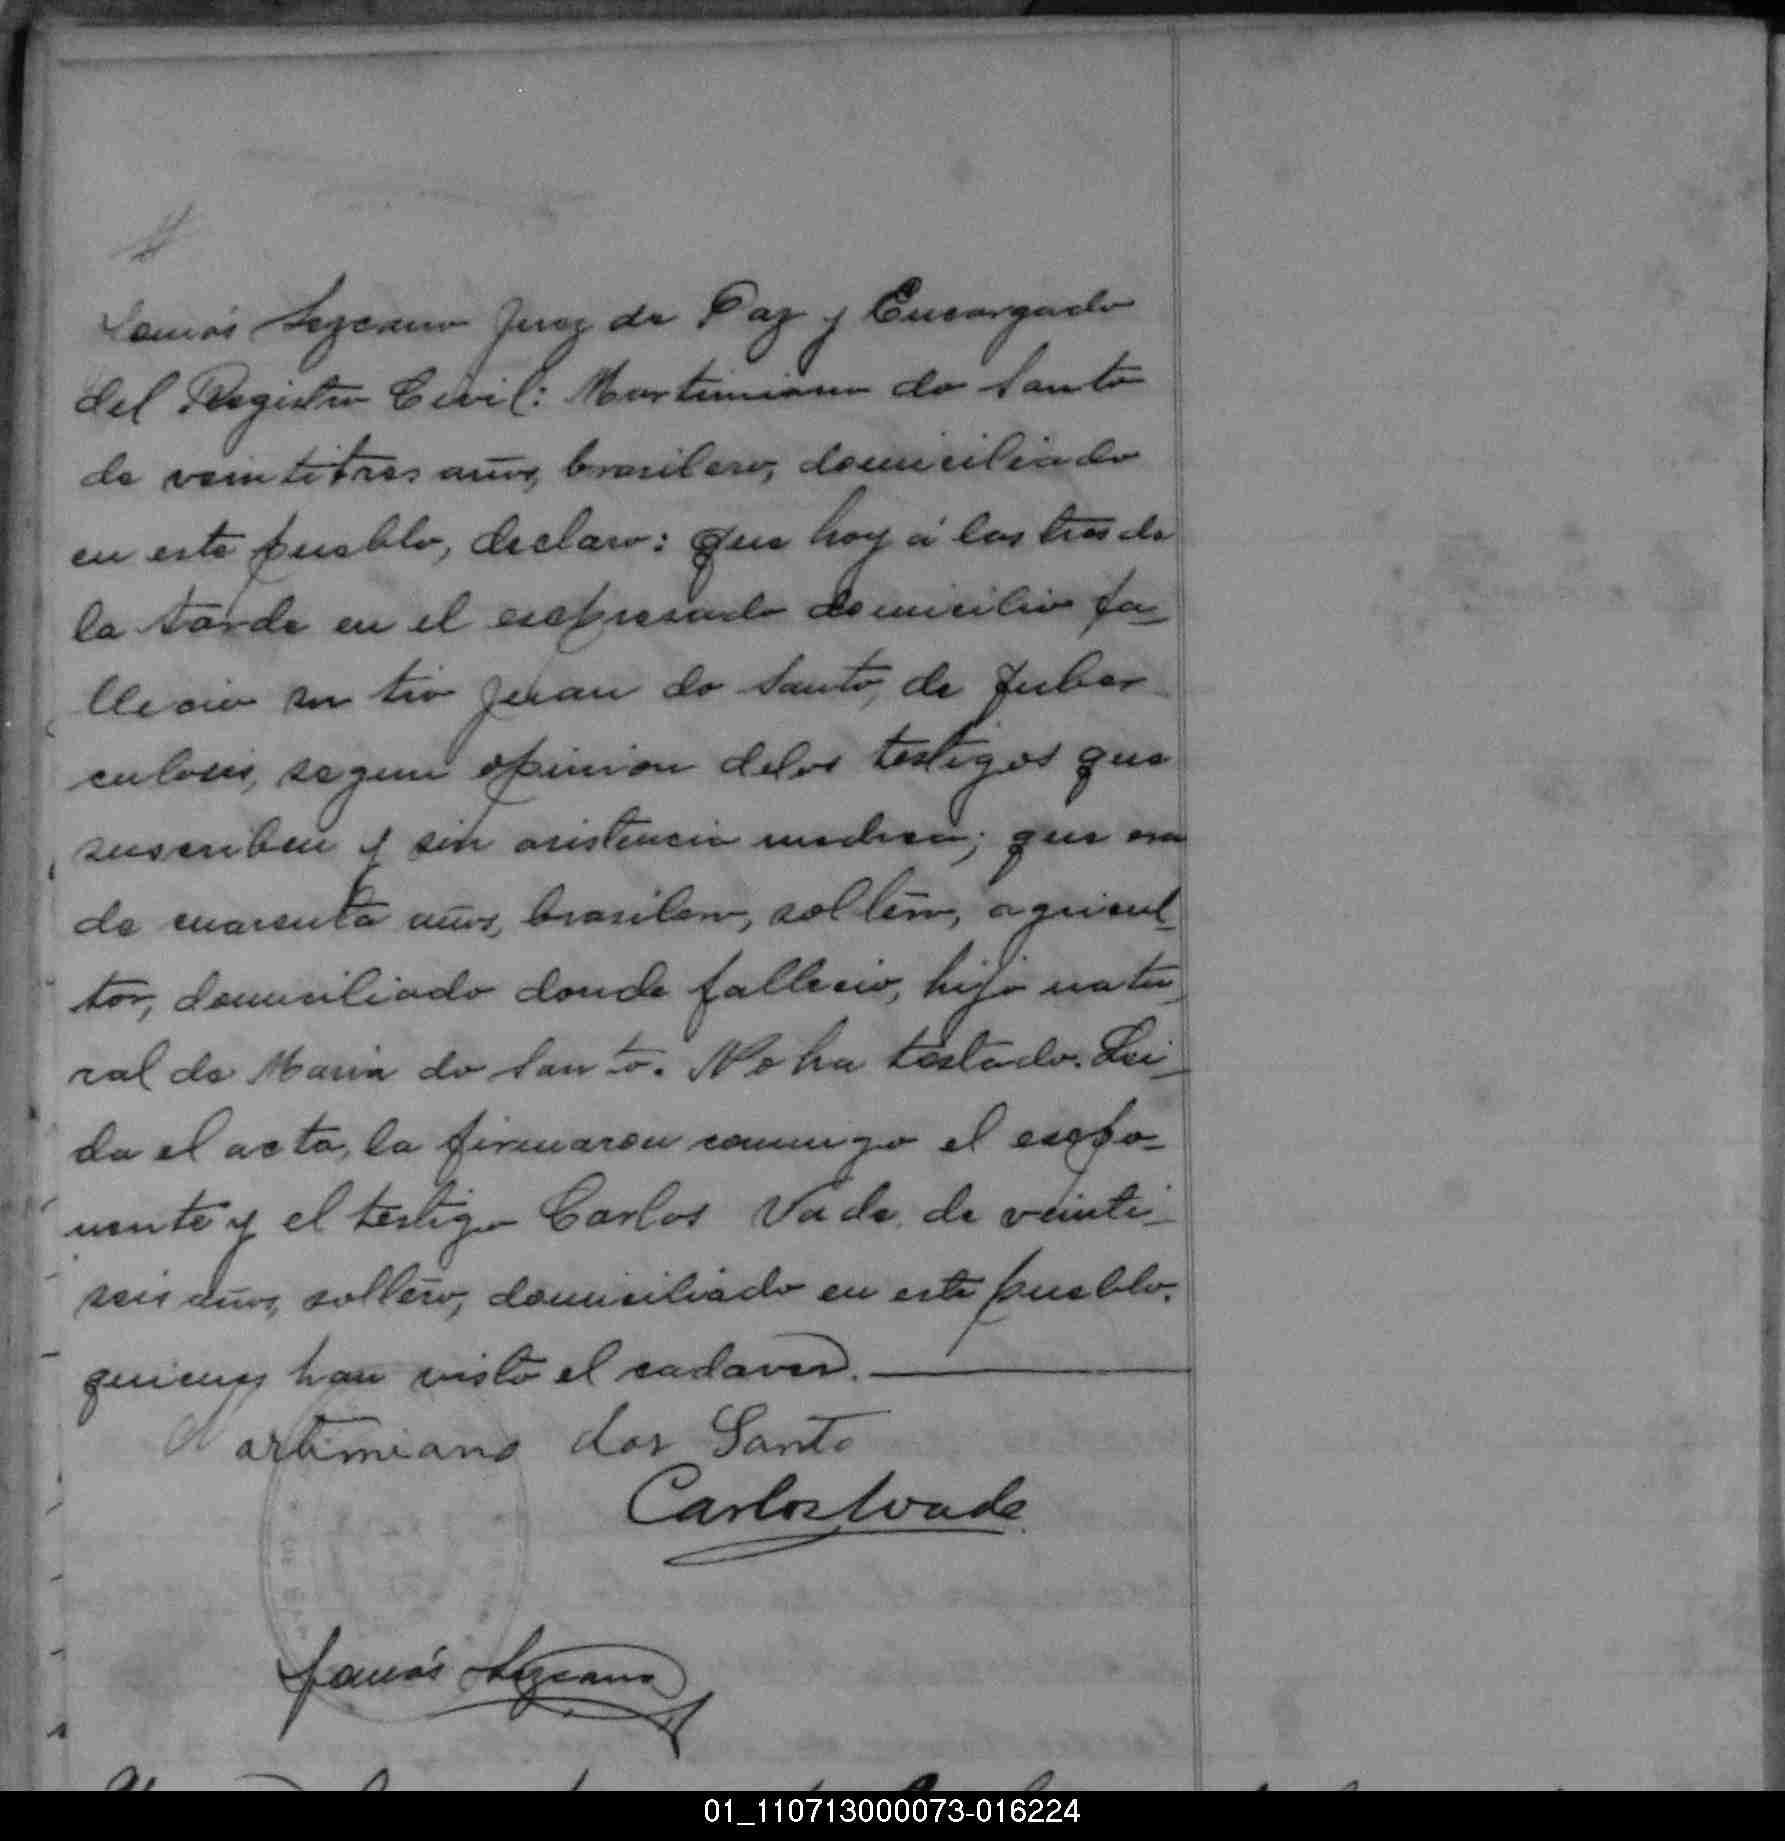 Tomás Lezcano Juez de Paz y Encargado
del Registro Civil: Martimiano do Santo
de veintitres años, brasilero, domiciliado
en este pueblo, declaro: Que hoy á las tres de
la tarde en el esepresado domicilio fa_
llecio su tio Juan do Santo, de Tuber
culosis, segun opinion delos testigos que
suscriben y sin asistencia medica; que era
de cuarenta años, brasilero, soltero, agricul_
tor, domiciliado donde fallecio, hijo natu_
ral de Maria do Santo. No ha testado. Lei_
da el acta, la firmaron conmigo el esepo_
nente y el testigo Carlos Vade, de veinti_
seis años, soltero, domiciliado en este pueblo,
quienes han visto el cadaver.
Martimiano dos Santo
Carlos Wade
Tomás Lezcano
01_110713000073-016224